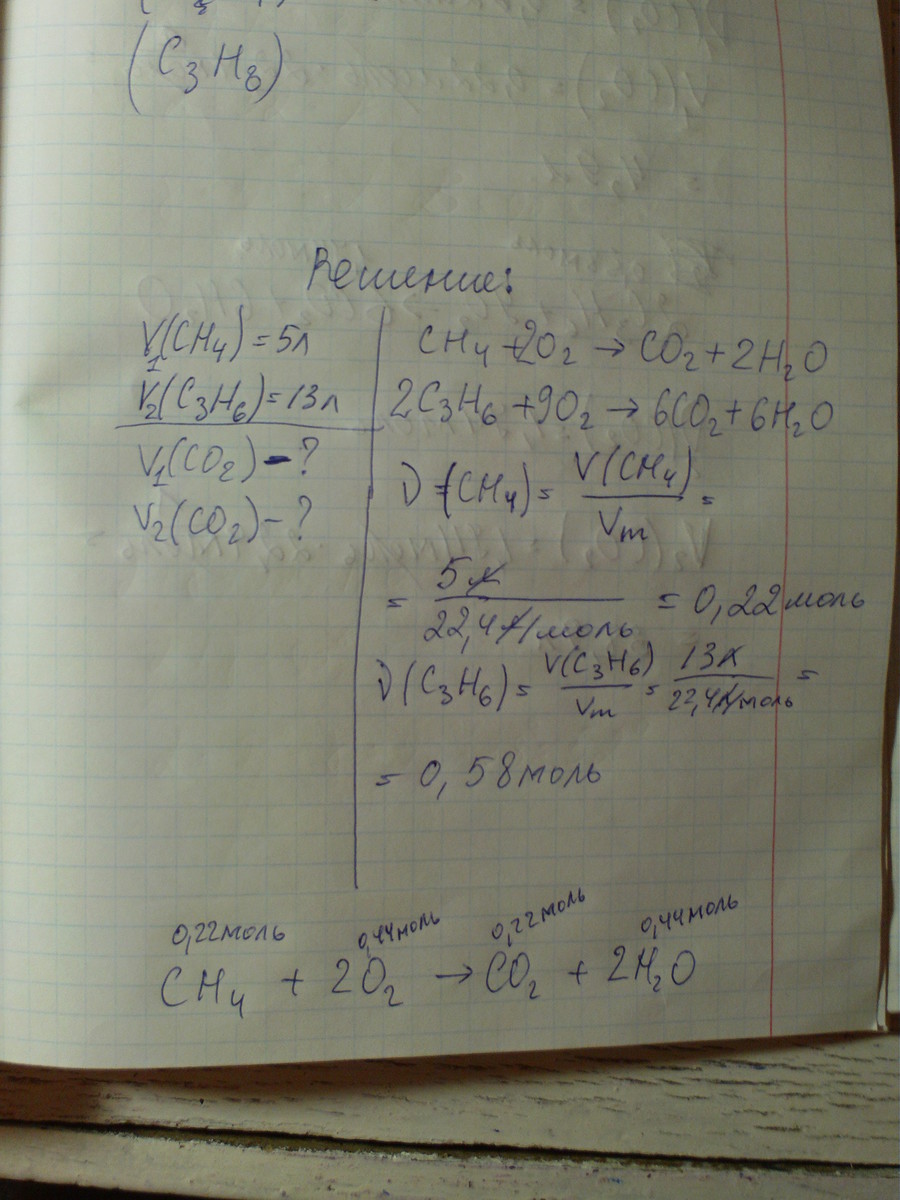 (C3H8)
Решение:
V1(CH4)=5л
V2(C3H6)=13л
V1(CO2)-?
V2(CO2)-?
CH4+2O2→CO2+2H2O
2C3H6+9O2→6CO2+6H2O
ν=(CH4)= V(CH4)/Vm =
= 5л/22,4л/моль = 0,22моль
ν(C3H6)= V(C3H6)/Vm = 13л/22,4л/моль =
= 0,58моль
0,22моль 0,44моль 0,22моль 0,44моль
CH4 + 2O2 → CO2 + 2H2O